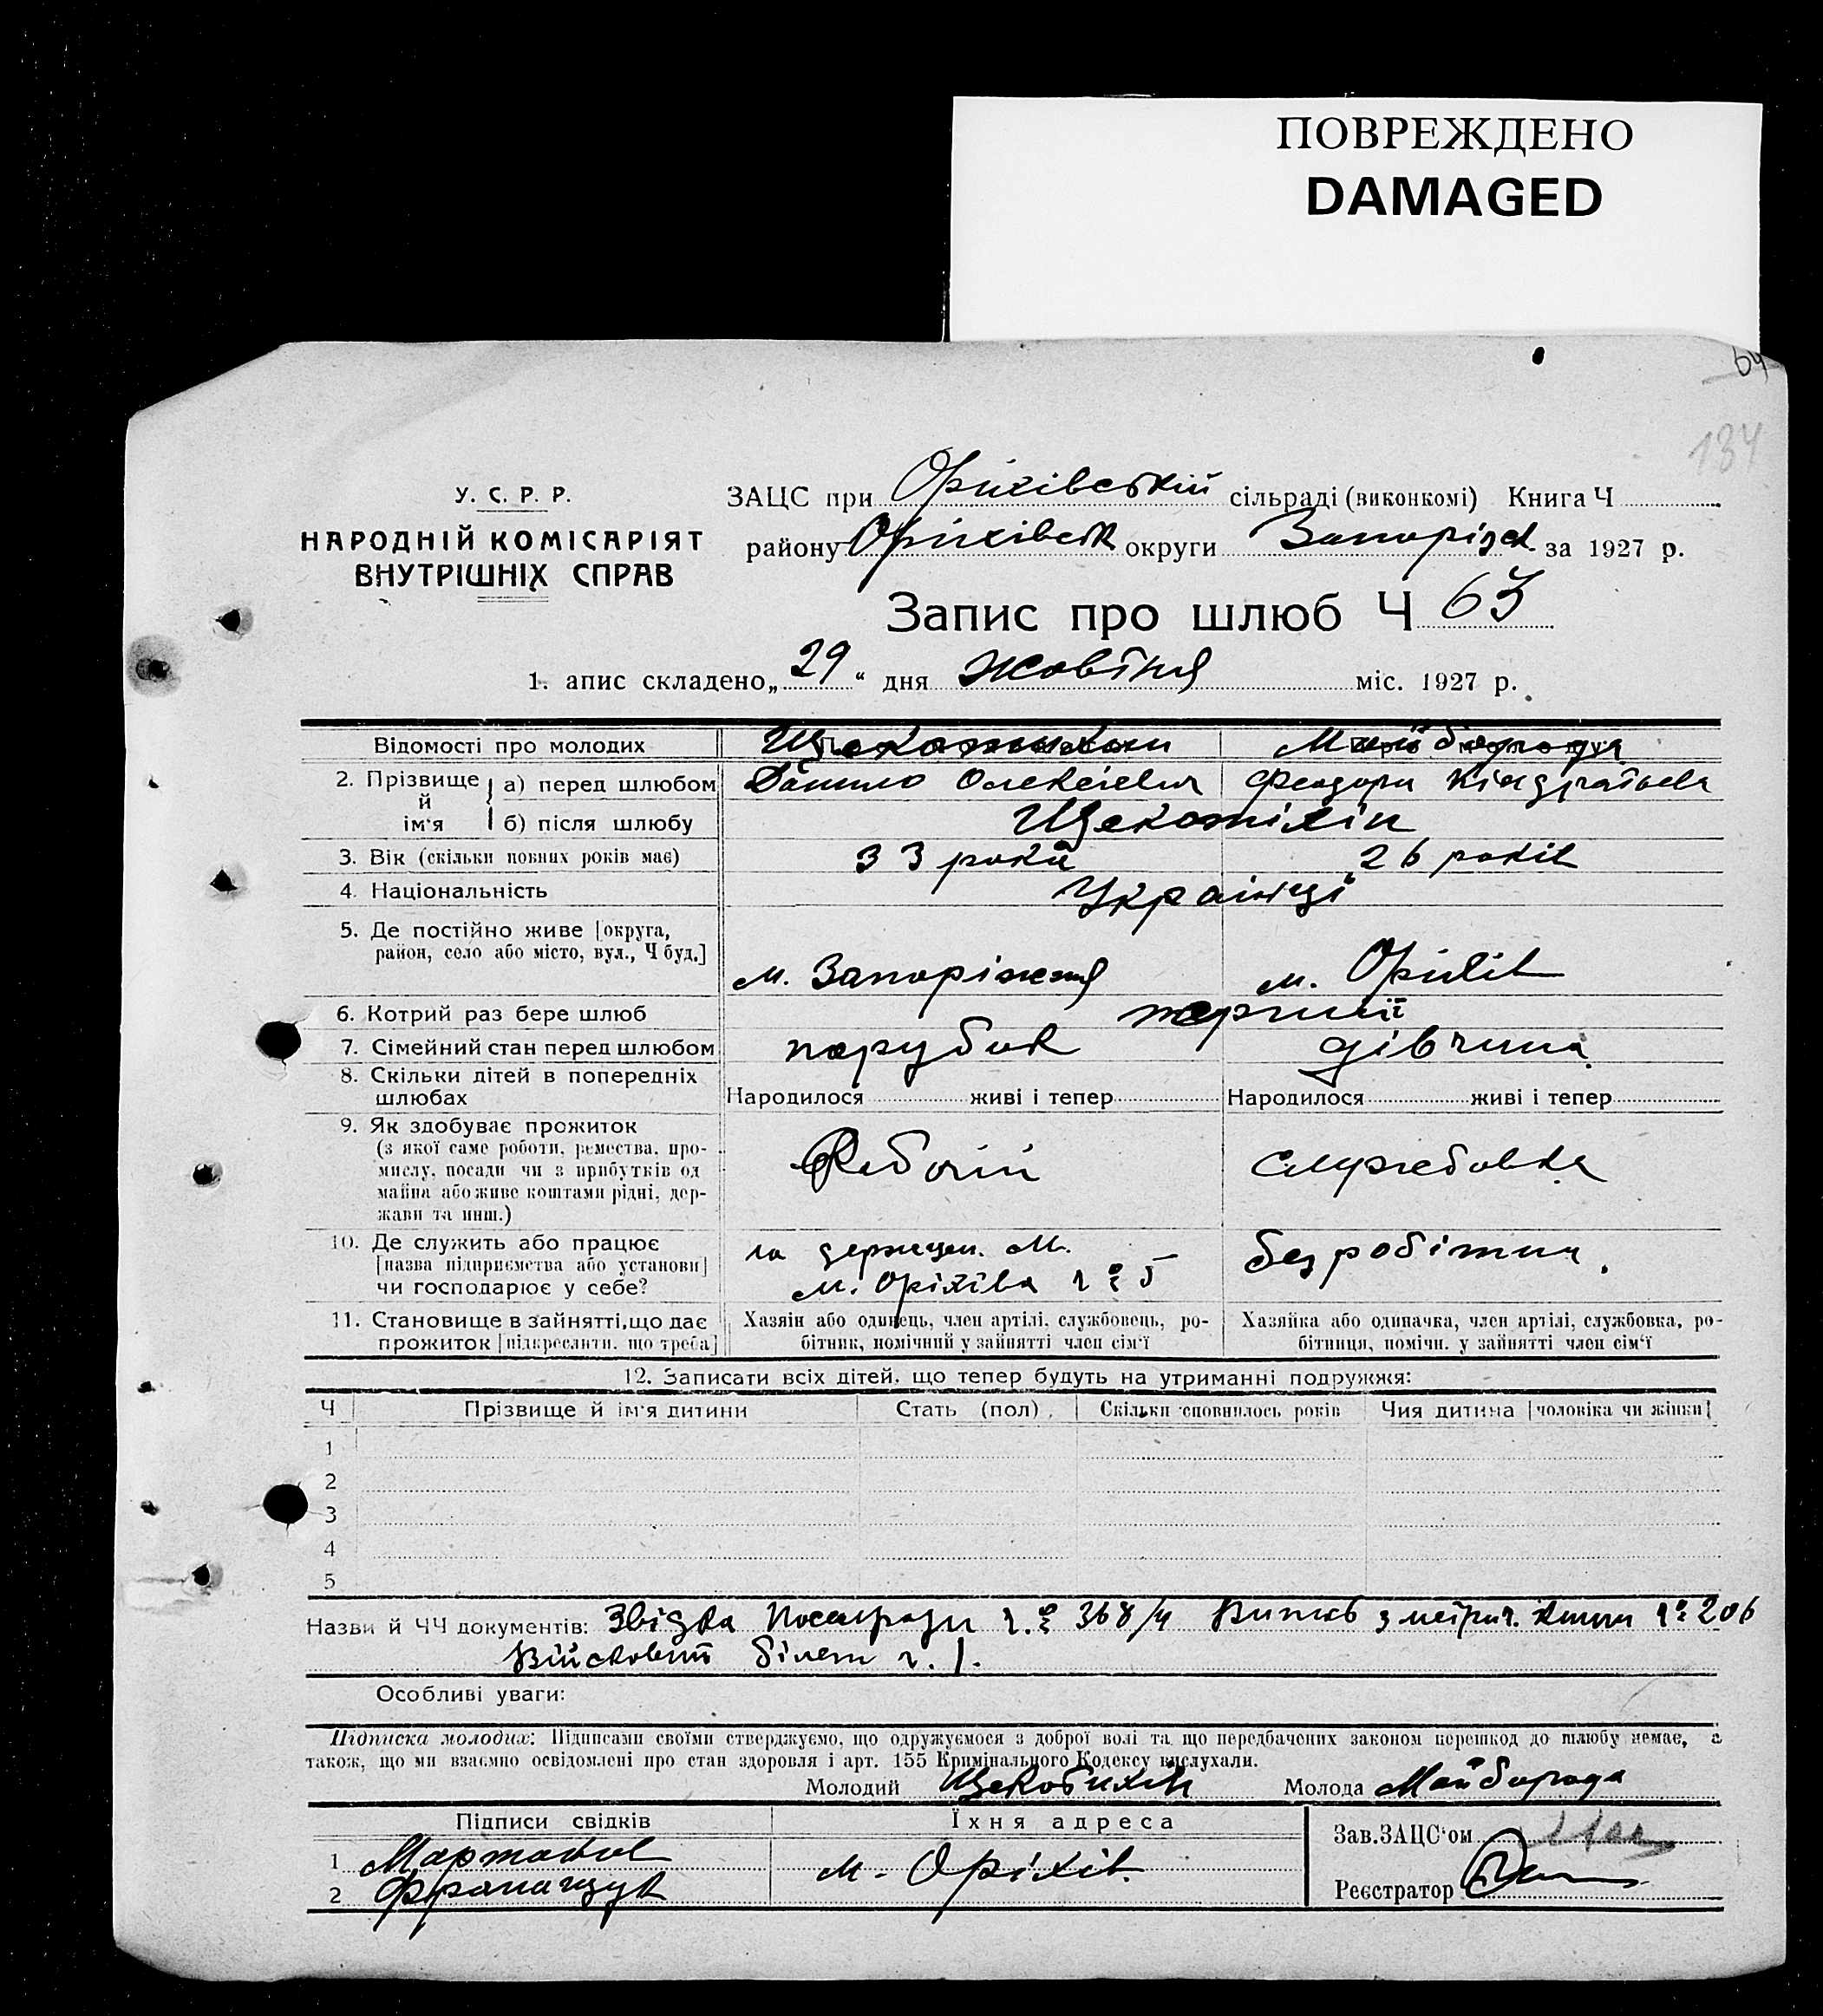 ПОВРЕЖДЕНО
DAMAGED
64
134
У. С. Р. Р.
НАРОДНІЙ КОМІСАРІЯТ
ВНУТРІШНІХ СПРАВ
ЗАЦС при Оріхівській сільраді (виконкомі) Книга Ч
району Оріхівськ округи Запорізьк. за 1927 р.
Запис про шлюб Ч 63
1. апис складено „29“ дня Жовтня міс. 1927 р.
Відомості про молодих Майборода
2. Прізвище й ім‘я а) перед шлюбом Данило Олексієвич Феодора Кіндратьевна
б) після шлюбу Щекотіхін
3. Вік (скільки повних років має) 33 роки 26 років
4. Національність Українці
5. Де постійно живе [округа,
район, село або місто, вул., Ч буд.] м. Запоріжжя м. Оріхів
6. Котрий раз бере шлюб перший
7. Сімейний стан перед шлюбом парубок дівчина
8. Скільки дітей в попередніх
шлюбах Народилося живі і тепер Народилося живі і тепер
9. Як здобуває прожиток
(з якої саме роботи, ремества, про-
мислу, посади чи з прибутків од
майна або живе коштами рідні, дер-
жави та инш.) Робочий службовка
10. Де служить або працює
[назва підприємства або установи]
чи господарює у себе? м. Оріхіва ч. 5 безробітна.
11. Становище в зайнятті, що дає
прожиток [підкреслити, що треба]
Хазяїн або одинець, член артілі, службовець, ро-
бітник, помічний у зайнятті член сім‘ї
Хазяйка або одиначка, член артілі, службовка, ро-
бітниця, помічн. у зайнятті член сім‘ї
12. Записати всіх дітей, що тепер будуть на утриманні подружжя:
Ч Прізвище й ім‘я дитини Стать (пол) Скільки сповнилось років Чия дитина [чоловіка чи жінки]
1
2
3
4
5
Назви й ЧЧ документів: Звідка ч. 368/4 Випис з метрич. книги ч. 206
Військовий білет ч. 1.
Особливі уваги:
Підписка молодих: Підписами своїми стверджуємо, що одружуємося з доброї волі та що передбачених законом перешкод до шлюбу немає, а
також, що ми взаємно освідомлені про стан здоровля і арт. 155 Кримінального Кодексу вислухали.
Молодий Щекотихін Молода Майборода
Підписи свідків Їхня адреса
1
2
м. Оріхів.
Зав. ЗАЦС‘ом
Реєстратор